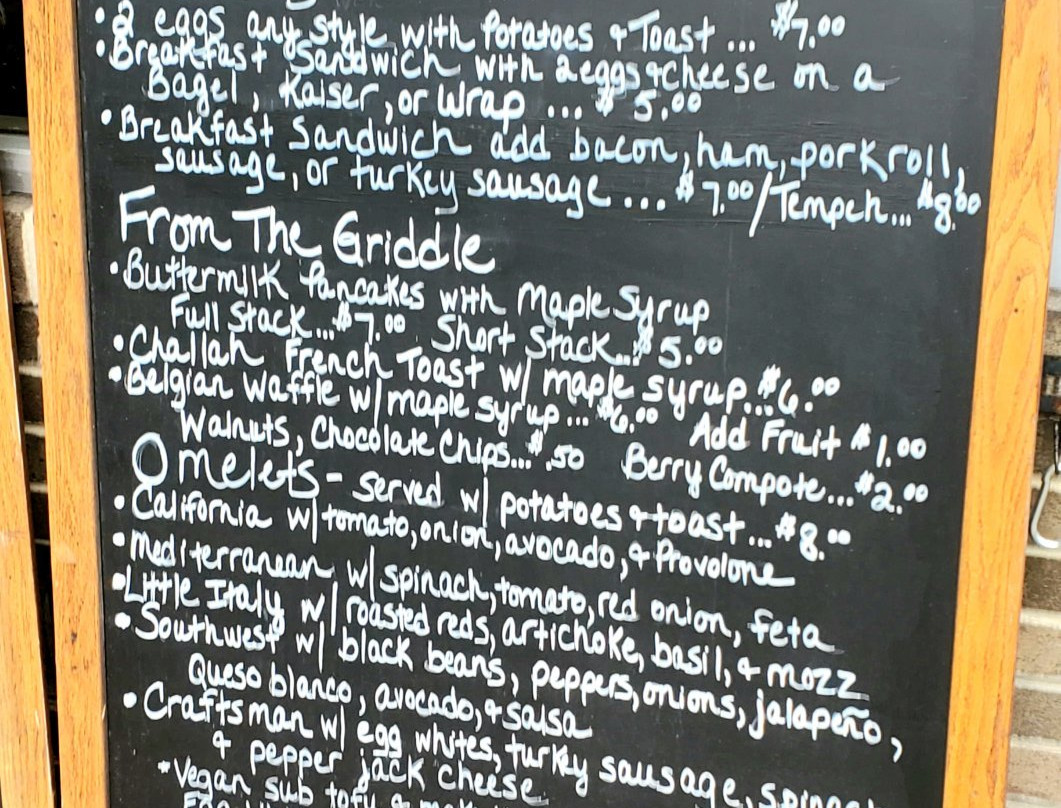 • 2 eggs any style with Potatoes & Toast ... $7.00
• Breakfast Sandwich with 2 eggs & cheese on a
Bagel, Kaiser, or Wrap ... $5.00
• Breakfast Sandwich add bacon, ham, porkroll,
sausage, or turkey sausage ... $7.00/Tempeh... $8.00
From The Griddle
• Buttermilk Pancakes with Maple Syrup
Full Stack... $7.00 Short Stack... $5.00
• Challah French Toast w/ maple syrup... $6.00
• Belgian Waffle w/ maple syrup... $6.00 Add Fruit $1.00
Walnuts, Chocolate Chips... $.50 Berry Compote... $2.00
Omelets - Served w/ potatoes & toast... $8.00
• California w/ tomato, onion, avocado, & Provolone
• Mediterranean w/ spinach, tomato, red onion, feta
• Little Italy w/ roasted reds, artichoke, basil, & mozz
• Southwest w/ black beans, peppers, onions, jalapeño,
Queso blanco, avocado, & salsa
• Craftsman w/ egg whites, turkey sausage,
& pepper jack cheese
*Vegan sub tofu &